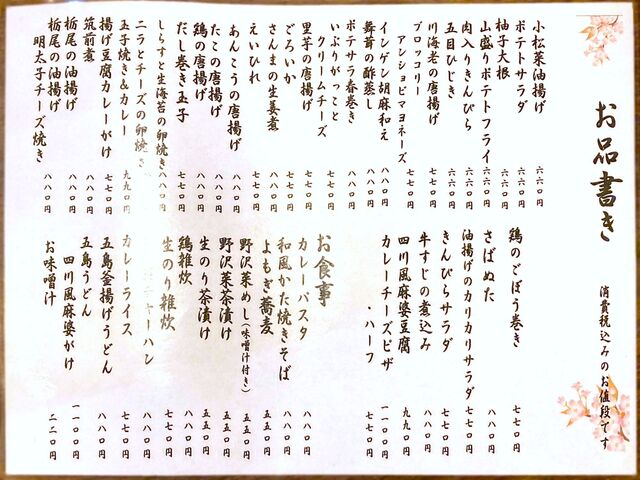 お品書き
消費税込みのお値段です
小松菜油揚げ 六六〇円
ポテトサラダ 六六〇円
柚子大根 六六〇円
山盛りポテトフライ 六六〇円
肉入りきんぴら 六六〇円
五目ひじき 六六〇円
川海老の唐揚げ 七七〇円
ブロッコリー
アンショビマヨネーズ 七七〇円
インゲン胡麻和え 八八〇円
舞茸の酢蒸し 八八〇円
ポテサラ春巻き 八八〇円
いぶりがっこと
クリームチーズ 七七〇円
里芋の唐揚げ 七七〇円
ごろいか 七七〇円
さんまの生姜煮 七七〇円
えいひれ 七七〇円
あんこうの唐揚げ 八八〇円
たこの唐揚げ 八八〇円
鶏の唐揚げ 八八〇円
だし巻き玉子 七七〇円
しらすと生海苔の卵焼き 八八〇円
ニラとチーズの卵焼き
玉子焼き&カレー 九九〇円
揚げ豆腐カレーがけ 七七〇円
筑前煮 八八〇円
栃尾の油揚げ 八八〇円
栃尾の油揚げ
明太子チーズ焼き 八八〇円
鶏のごぼう巻き 七七〇円
さばぬた 八八〇円
油揚げのカリカリサラダ 七七〇円
きんぴらサラダ 七七〇円
牛すじの煮込み 八八〇円
四川風麻婆豆腐 九九〇円
カレーチーズピザ 一一〇〇円
・ハーフ 七七〇円
お食事
カレーパスタ 八八〇円
和風かた焼きそば 八八〇円
よもぎ蕎麦 五五〇円
野沢菜めし(味噌汁付き) 五五〇円
野沢菜茶漬け 五五〇円
生のり茶漬け 五五〇円
鶏雑炊 七七〇円
生のり雑炊 七七〇円
八八〇円
カレーライス 七七〇円
五島釜揚げうどん 八八〇円
五島うどん
四川風麻婆がけ 一一〇〇円
お味噌汁 二二〇円